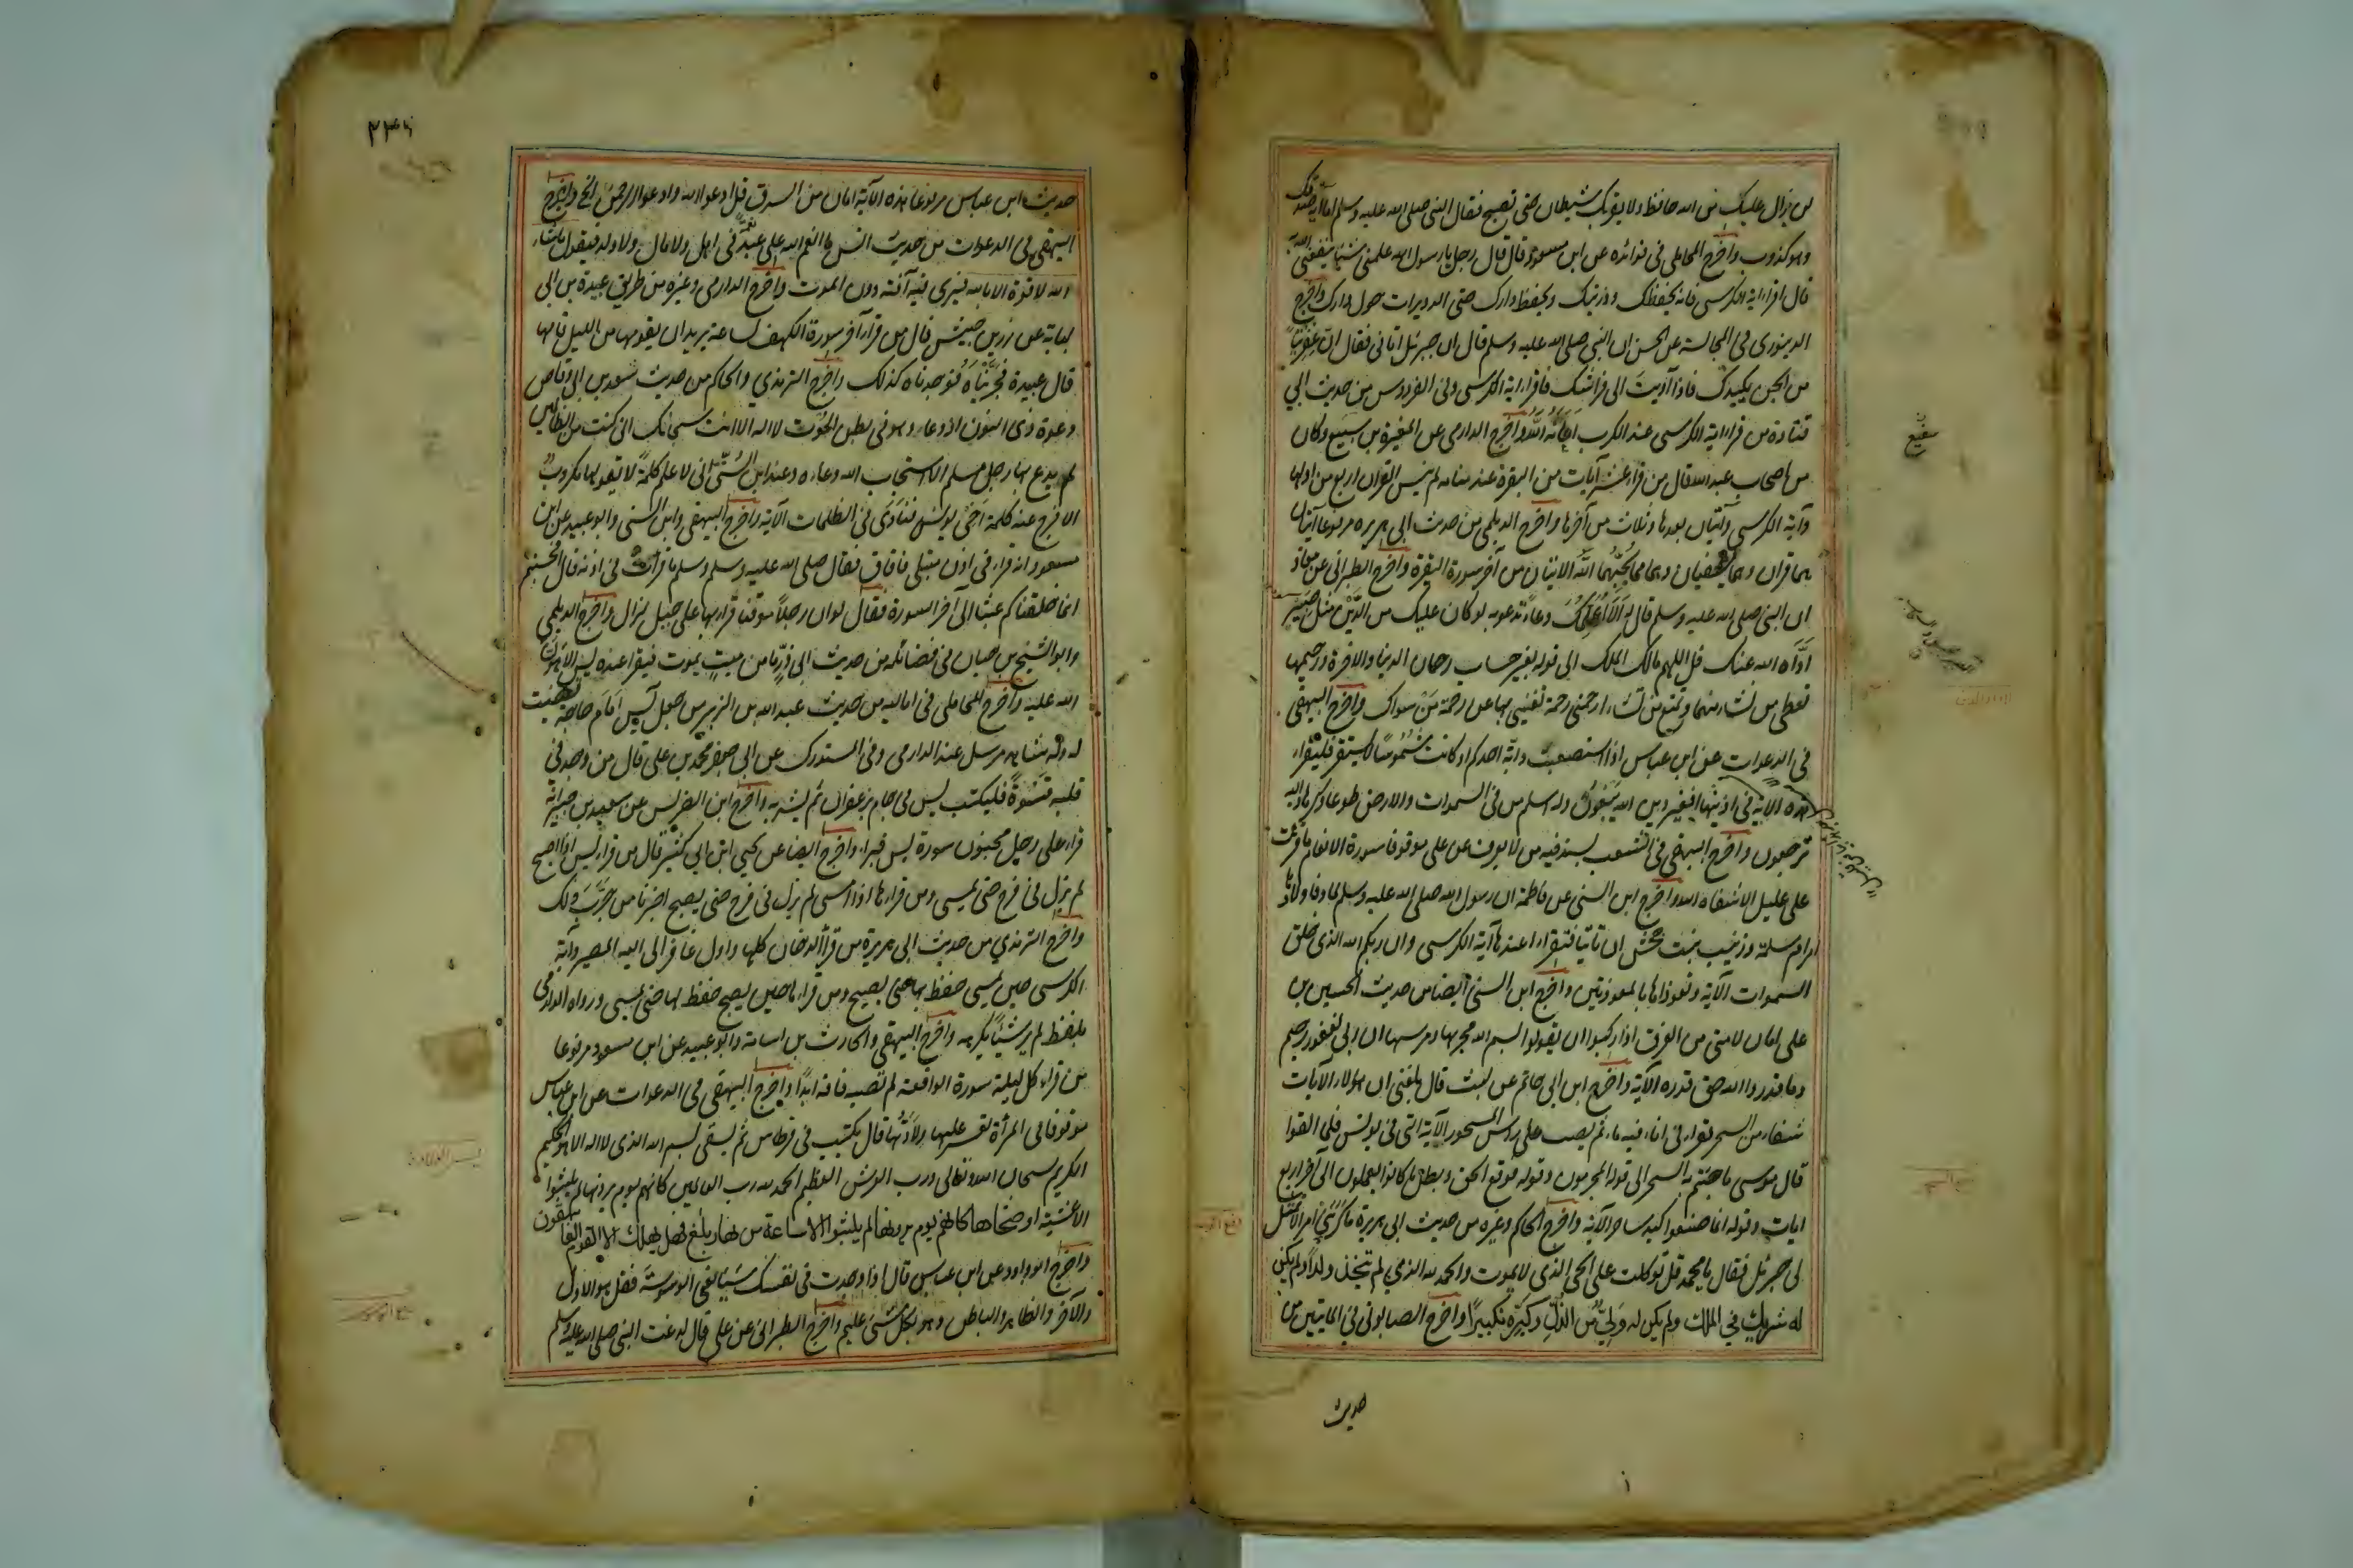 لن يزال عليك من الله حافظ ولا يقربك شيطان حتى تصبح فقال النبي صلى الله عليه وسلم اما انه صدقك
وهو كذوب واخرج المحاملي في فوائده عن ابن مسعود قال قال رجل يا رسول الله علمني شيئا ينفعني الله به
قال اقرا اية الكرسي فانه يحفظك وذريتك ويحفظ دارك حتى الدويرات حول دارك واخرج
الدينوري في المجالسة عن الحسن ان النبي صلى الله عليه وسلم قال ان جبرئل اتاني فقال ان عفريتا
من الجن يكيدك فاذا آويت الى فراشك فاقرا اية الكرسي وفي الفردوس من حديث ابي
قتادة من قرا اية الكرسي عند الكرب اغاثه الله واخرج الدارمي عن المغيرة بن سبيع وكان
من اصحاب عبد الله قال من قرا عشر آيات من البقرة عند منامه لم ينس القران اربع من اولها
وآية الكرسي وآيتان بعدها وثلاث من آخرها واخرج الديلمي من حديث ابي هريره مرفوعا آيتان
هما قران وهما يشفيان وهما مما يحبهما الله الايتان من آخر سورة البقرة واخرج الطبراني عن معاذ
ان النبي صلى الله عليه وسلم قال له الا اعلمك دعاء تدعو به لو كان عليك من الدين مثل صبير
اداه الله عنك قل اللهم مالك الملك الى قوله بغير حساب رحمان الدنيا والاخرة ورحيمها
تعطي من تشاء منهما وتمنع من تشاء ارحمني رحمة تغنيني بها عن رحمة من سواك واخرج البيهقي
في الدعوات عن ابن عباس اذا استصعبت دابة احدكم او كانت شموسا فليقراء
هذه الاية في اذنيها افغير دين الله يبغون وله اسلم من في السموات والارض طوعا وكرها واليه
ترجعون واخرج البيهقي في الشعب بسند فيه من لا يعرف عن علي موقوفا سورة الانعام ما قرئت
على عليل الا شفاه الله واخرج ابن السني عن فاطمة ان رسول الله صلى الله عليه وسلم لما دنا ولادها
امر ام سلمة وزينب بنت جحش ان تاتيا فتقراءا عندها آية الكرسي وان ربكم الله الذي خلق
السموات الآية وتعوذاها بالمعوذتين واخرج ابن السني ايضا من حديث الحسين بن
علي امان لامتي من الغرق اذا ركبوا ان يقولوا بسم الله مجراها ومرسها ان ربي لغفور رحيم
وما قدروا الله حق قدره الآية واخرج ابن ابي حاتم عن ليث قال بلغني ان هولاء الآيات
شفاء من السحر تقراء في اناء فيه ماء ثم يصب على راس المسحور الآية التي في يونس فلما القوا
قال موسى ما جئتم به السحر الى قوله المجرمون وقوله فوقع الحق وبطل ما كانوا يعملون الى آخر اربع
ايات وقوله انما صنعوا كيد ساحر الآية واخرج الحاكم وغيره من حديث ابي هريرة ما كربني امر الا تمثل
لي جبرئل فقال يا محمد قل توكلت على الحي الذي لا يموت والحمد لله الذي لم يتخذ ولدا ولم يكن
له شريك في الملك ولم يكن له ولي من الذل وكبره تكبيرا واخرج الصابوني في المايتين من
حديث
حديث ابن عباس مرفوعا هذه الآية امان من السرق قل ادعوا الله وادعوا الرحمن الخ واخرج
البيهقي في الدعوات من حديث انس ما انعم الله على عبد في اهل ولا مال ولا ولد فيقول ما شاء
الله لا قوة الا بالله فيرى فيه آفة دون الموت واخرج الدارمي وغيره من طريق عبيدة بن ابي
لبابة عن زر بن حبيش قال من قرا آخر سورة الكهف لساعة يريد ان يقومها من الليل قامها
قال عبيدة فجربناه فوجدناه كذلك واخرج الترمذي والحاكم من حديث سعد بن ابي وقاص
دعوة ذي النون اذ دعا وهو في بطن الحوت لا اله الا انت سبحانك اني كنت من الظالمين
لم يدع بها رجل مسلم الا استجاب الله دعاءه وعند ابن السني اني لاعلم كلمة لا يقولها مكروب
الا فرج عنه كلمة اخي يونس فنادى في الظلمات الآية واخرج البيهقي وابن السني وابو عبيد عن ابن
مسعود انه قراء في اذن مبتلى فافاق فقال صلى الله عليه وسلم وسلم ما قرات في اذنه قال افحسبتم
انما خلقناكم عبثا الى اخر السورة فقال لو ان رجلا موقنا قرا بها على جبل لزال واخرج الديلمي
وابو الشيخ بن حبان في فضائله من حديث ابي ذر ما من ميت يموت فيقرا عنده يس الا هون
الله عليه واخرج المحاملي في اماليه من حديث عبد الله بن الزبير من جعل يس امام حاجة قضيت
له وله شاهد مرسل عند الدارمي وفي المستدرك عن ابي جعفر محمد بن علي قال من وجد في
قلبه قسوة فليكتب يس في جام بزعفران ثم يشربه واخرج ابن الضريس عن سعيد بن جبير انه
قراء على رجل مجنون سورة يس فبراء واخرج ايضا عن يحيى ابن ابي كثير قال من قراء يس اذا اصبح
لم يزل في فرح حتى يمسي ومن قراءها اذا امسى لم يزل في فرح حتى يصبح اخبرنا من جرب ذلك
واخرج الترمذي من حديث ابي هريرة من قرأ الدخان كلها واول غافر الى اليه المصير وآية
الكرسي حين يمسي حفظ بها حتى يصبح ومن قراءها حين يصبح حفظ بها حتى يمسي ورواه الدارمي
بلفظ لم ير شيئا يكرهه واخرج البيهقي والحارث بن اسامة وابو عبيد عن ابن مسعود مرفوعا
من قراء كل ليلة سورة الواقعة لم تصبه فاقة ابدا واخرج البيهقي في الدعوات عن ابن عباس
موقوفا في المرأة تعسر عليها ولادتها قال يكتب في قرطاس ثم يسقى بسم الله الذي لا اله الا هو الحكيم
الكريم سبحان الله وتعالى ورب العرش العظيم الحمد لله رب العالمين كانهم يوم يرونها لم يلبثوا
الا عشية او ضحاها كانهم يوم يرونها لم يلبثوا الا ساعة من نهار بلغ فهل يهلك الا القوم الفاسقون
واخرج ابو داود عن ابن عباس قال اذا وجدت في نفسك شيئا يعني الوسوسة فقل هو الاول
والآخر والظاهر والباطن وهو بكل شئ عليم واخرج الطبراني عن علي قال لدغت النبي صلى الله عليه وسلم